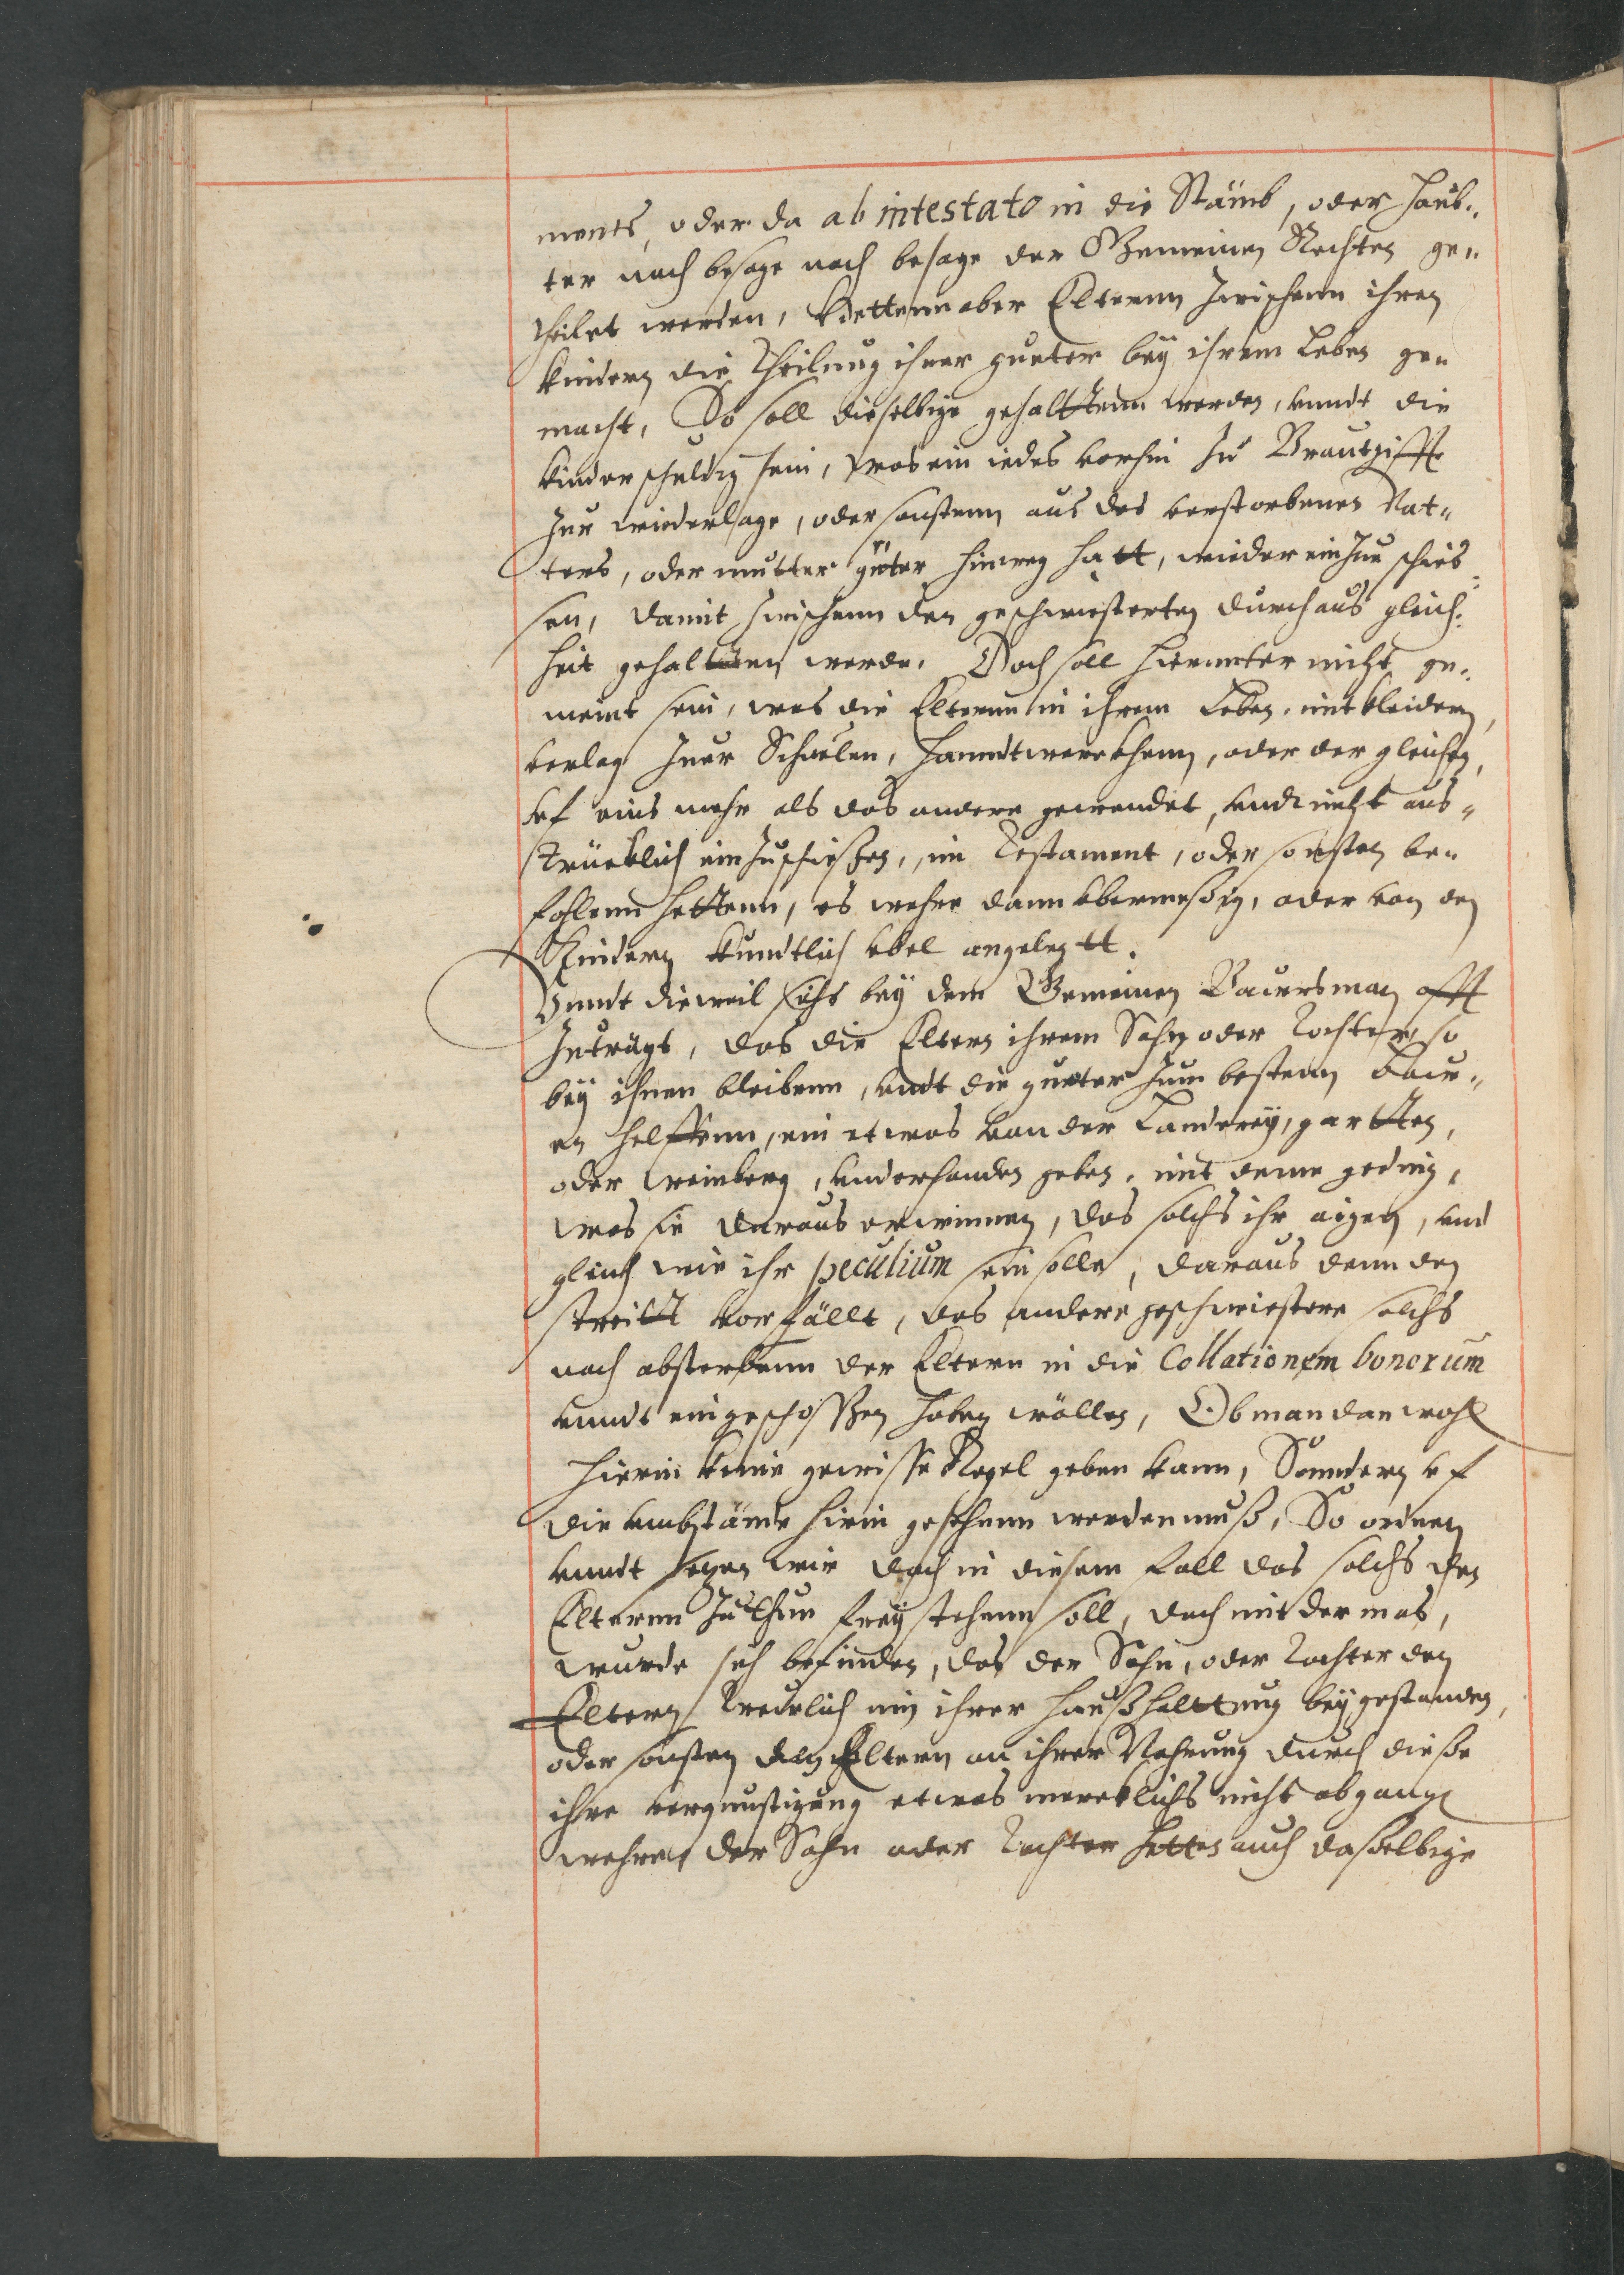 ments, oder da ab intestato in die Stämb, oder Haub„
ter nach besage nach besage der Gemeinen Rechten ge„
theilet werden, Hettenn aber Elternn zwischenn ihren
kindern die Theilung ihrer gueter bey ihrem Leben ge„
macht, So soll dieselbige gehalttenn werden, unndt die
kinder schuldig sein, was ein iedes vorhin zu Brautgifft
zur wiederlage, oder sonstenn aus des verstorbenen Vat„
ters, oder mutter güter hinweg hatt, wieder einzue schies
sen, damit zwischenn den geschwiesterten durchaus gleich„
heit gehaltten werde. Doch soll hierunter nicht ge„
meint sein, was die Elternn in ihrem Leben, mit kleidern,
verlag zuer Schuelen, Hanndtwerckhenn, oder der gleichen,
uf eins mehr als das andere gewendet, undt nicht aus„
trücklich einzuschießen, im Testament, oder sonsten be„
fohlenn hettenn, es wehre dann ubermeßig, oder von den
Kindern kundtlich ubel angelegtt.
Unndt dieweil sichs bey dem Gemeinen Bauersman offt
zuträgt, das die Eltern ihrem Sohn oder Tochter so
bey ihnen bleibenn, undt die gueter zum bestenn bau„
en helffenn, ein etwas von der Länderey, gartten,
oder weinberg, underhanden geben, mit deme geding,
was sie daraus erwinnen, das solchs ihr aigen, und
gleich wie ihr peculium sein solle, daraus denn den
streitt vorfällt, das andere geschwiestere solchs
nach absterbenn der Eltern in die Collationem bonorum
unndt eingeschossen haben wöllen, Ob man dan wohl
hierin keine gewisse Regel geben kann, Sonndern uf
die umbstände hirin gesehenn werden muß, So ordnen
unndt setzen wir doch in diesem fall das solchs den
Elternn zu thun frey stehenn soll, doch mit der mas,
wurde sich befinden, das der Sohn, oder Tochter den
Eltern treulich in ihrer haußhalttung beygestanden,
oder sonsten den Eltern an ihrer Nahrung durch diese
ihre vergunstigung etwas mercklichs nicht abgang
wehre, der Sohn oder Tochter hettes auch dasselbige